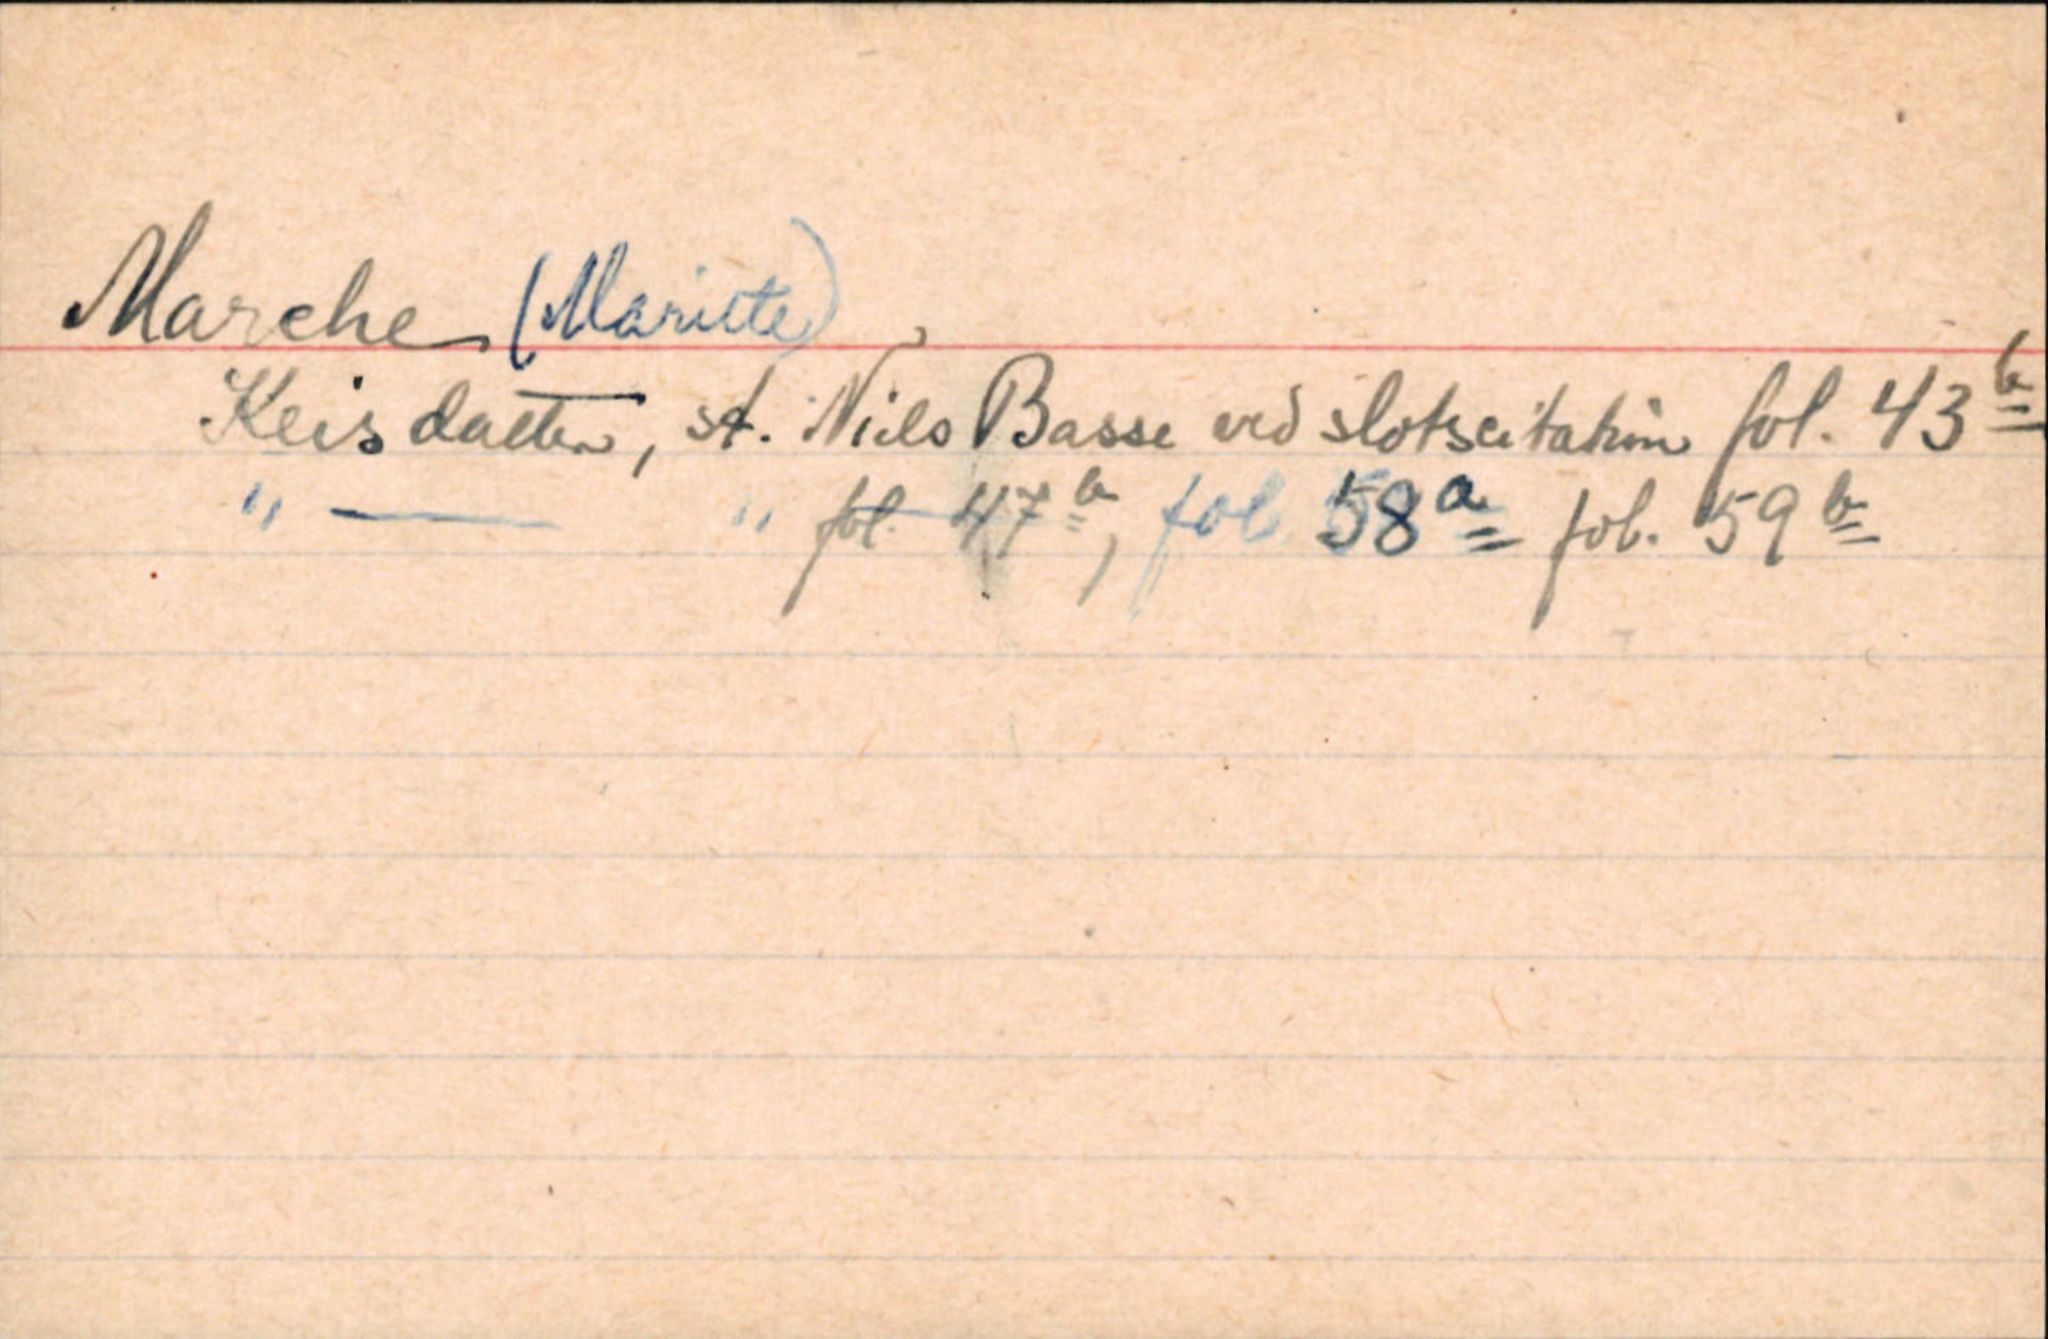 Marche (Maritte)
Keisdatter, st. Niels Basse ved slotscitation fol. 43 b
" — " fol. 47 b, fol. 58 a fol. 59 b